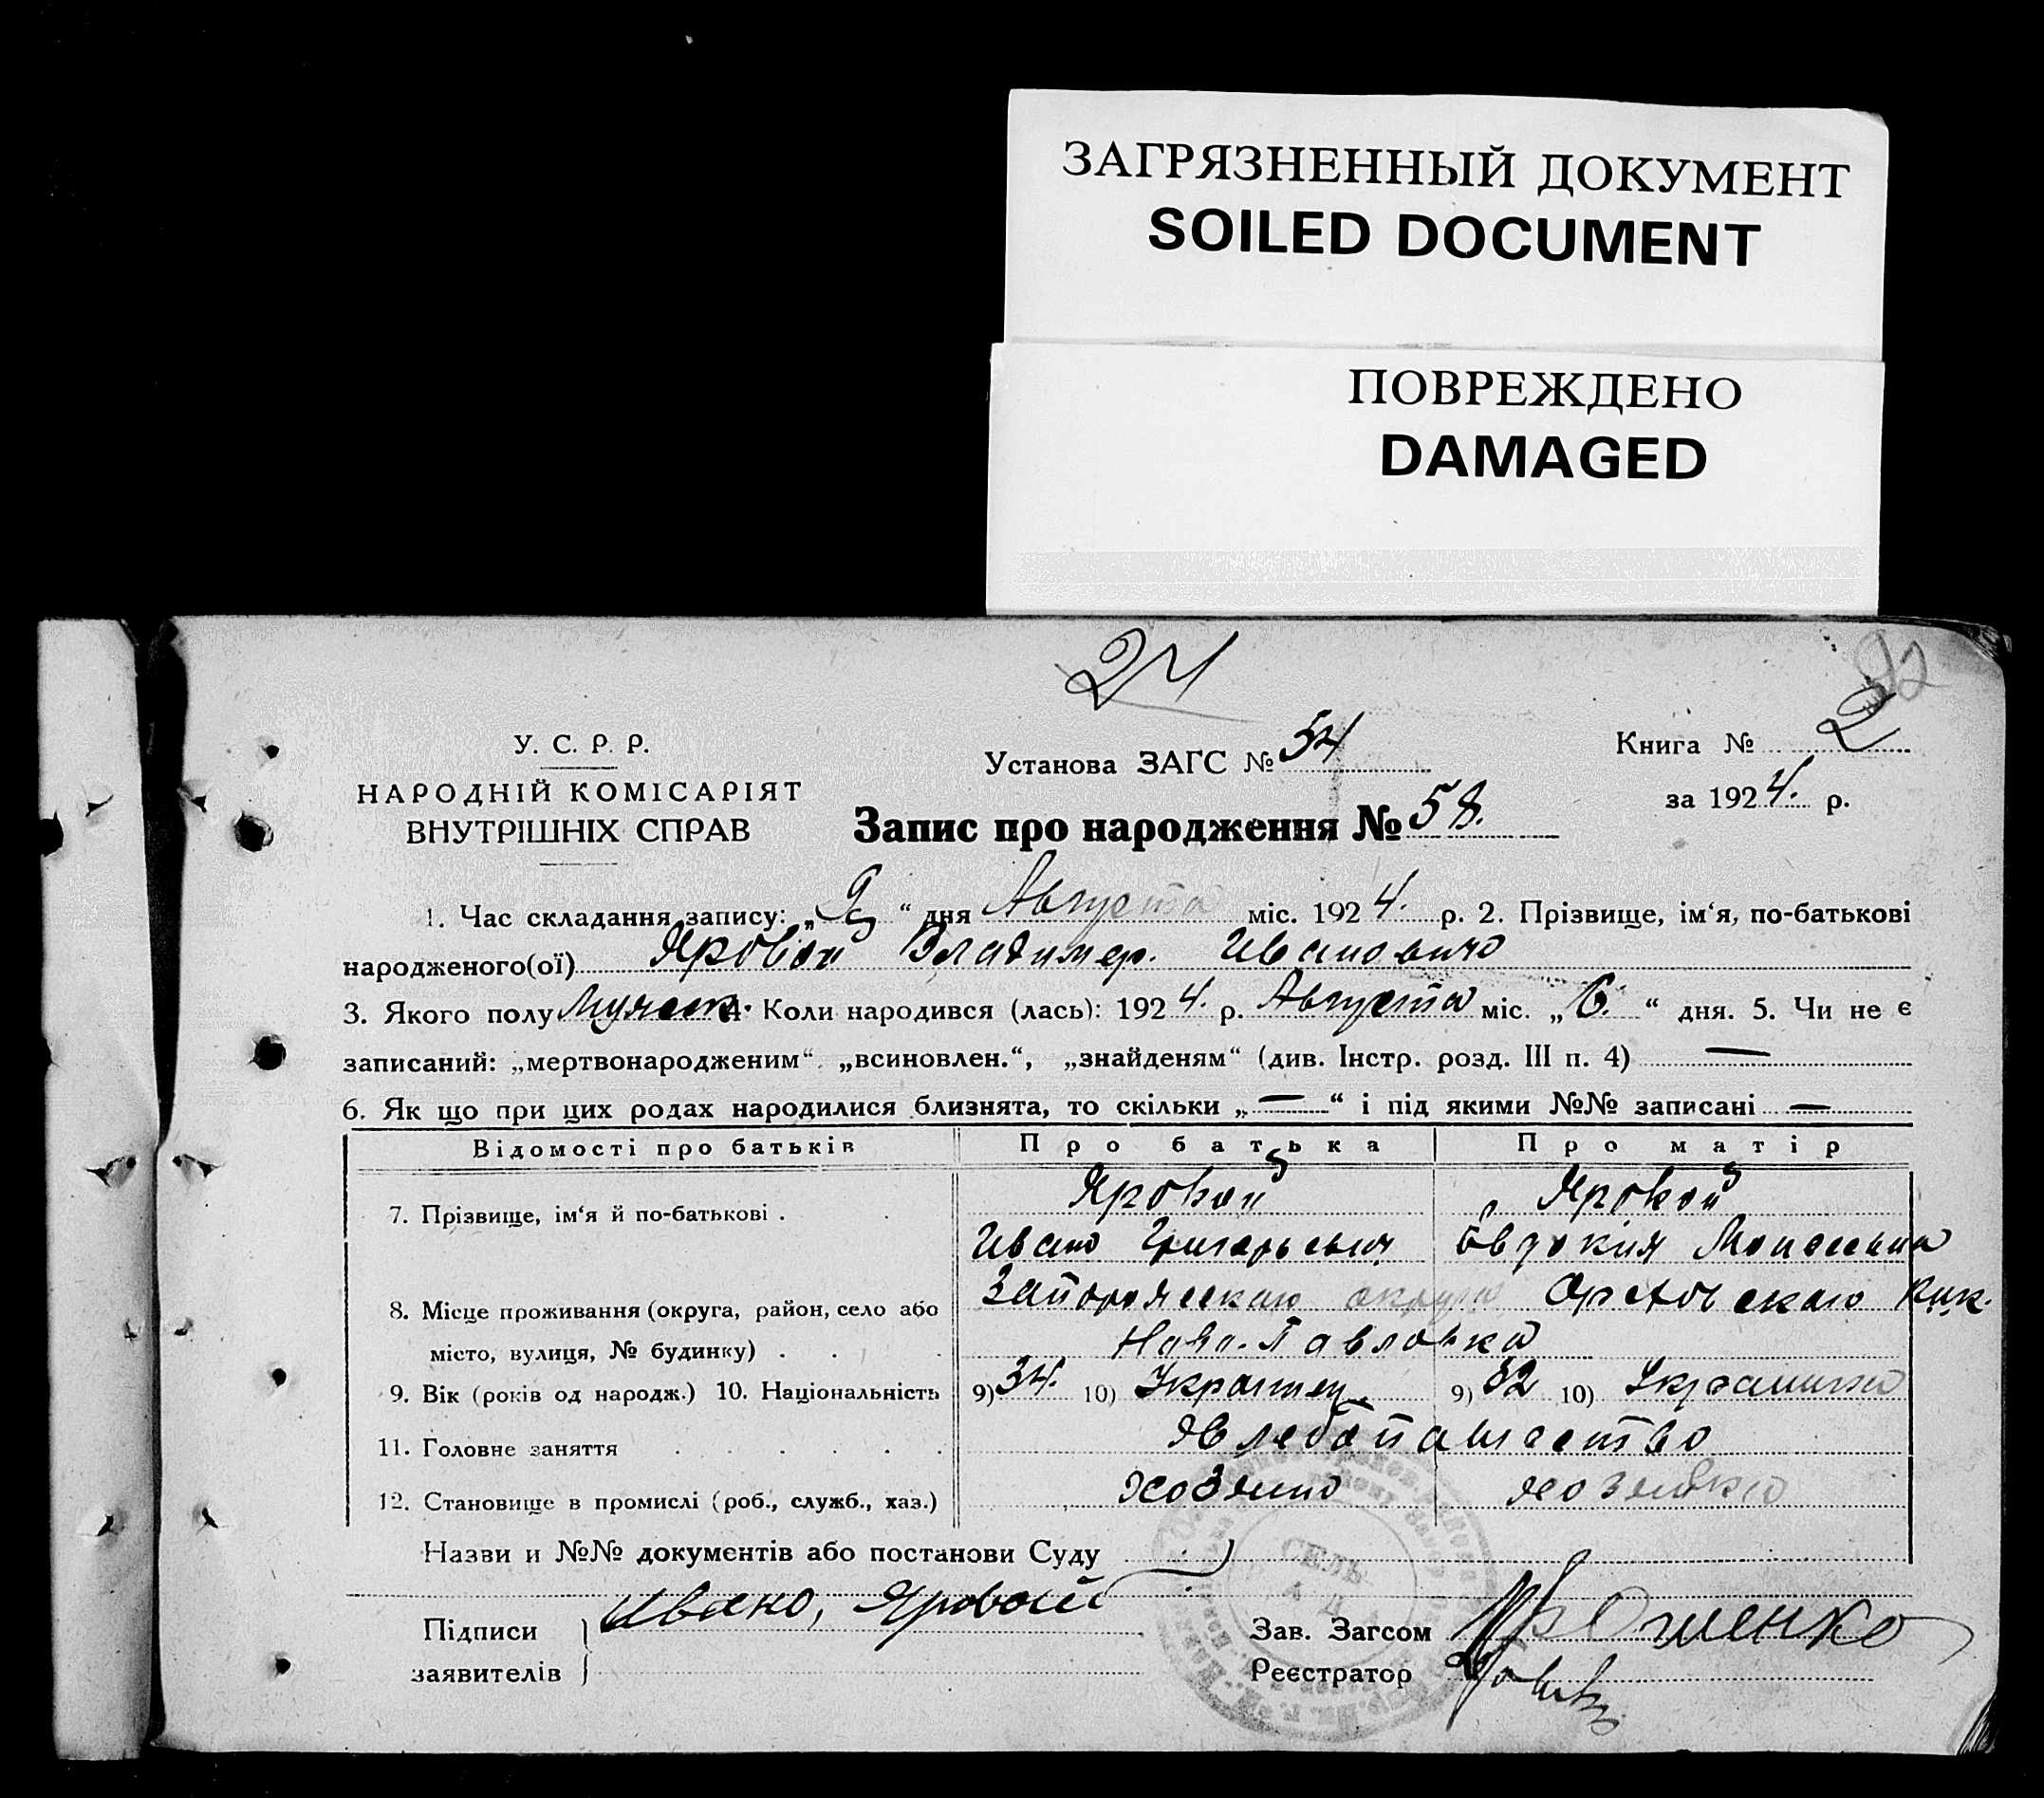 ЗАГРЯЗНЕННЫЙ ДОКУМЕНТ
SOILED DOCUMENT
ПОВРЕЖДЕНО
DAMAGED
24
92
У. С. Р. Р.
НАРОДНІЙ КОМІСАРІЯТ
ВНУТРІШНІХ СПРАВ
Установа ЗАГС № 54
Запис про народження № 58.
Книга № 2
за 1924. р.
1. Час складання запису: „9“ дня Августа міс. 1924. р. 2. Прізвище, ім‘я, по-батькові
народженого(ої) Яровой Владимер. Иванович
3. Якого полу Мужск. 4. Коли народився (лась): 1924. р. Августа міс. „6.“ дня. 5. Чи не є
записаний: „мертвонародженим“ „всиновлен.“, „знайденям“ (див. Інстр. розд. III п. 4) —
6. Як що при цих родах народилися близнята, то скільки „—“ і під якими №№ записані —
Відомості про батьків Про батька Про матір
7. Прізвище, ім‘я й по-батькові . Яровой Яровой
Иван Григорьевич Евдокия Моисеевна
8. Місце проживання (округа, район, село або Запорожскаго округа Ореховскаго
місто, вулиця, № будинку) . . . Ново-Павловка
9. Вік (років од народж.) 10. Національність 9) 34. 10) Украинец. 9) 32 10) Украинка
11. Головне заняття . . . . . . Хлебопашество
12. Становище в промислі (роб., служб., хаз.) хозяин хозяйка
Назви и №№ документів або постанови Суду
Підписи Яровой Зав. Загсом
заявителів Реєстратор